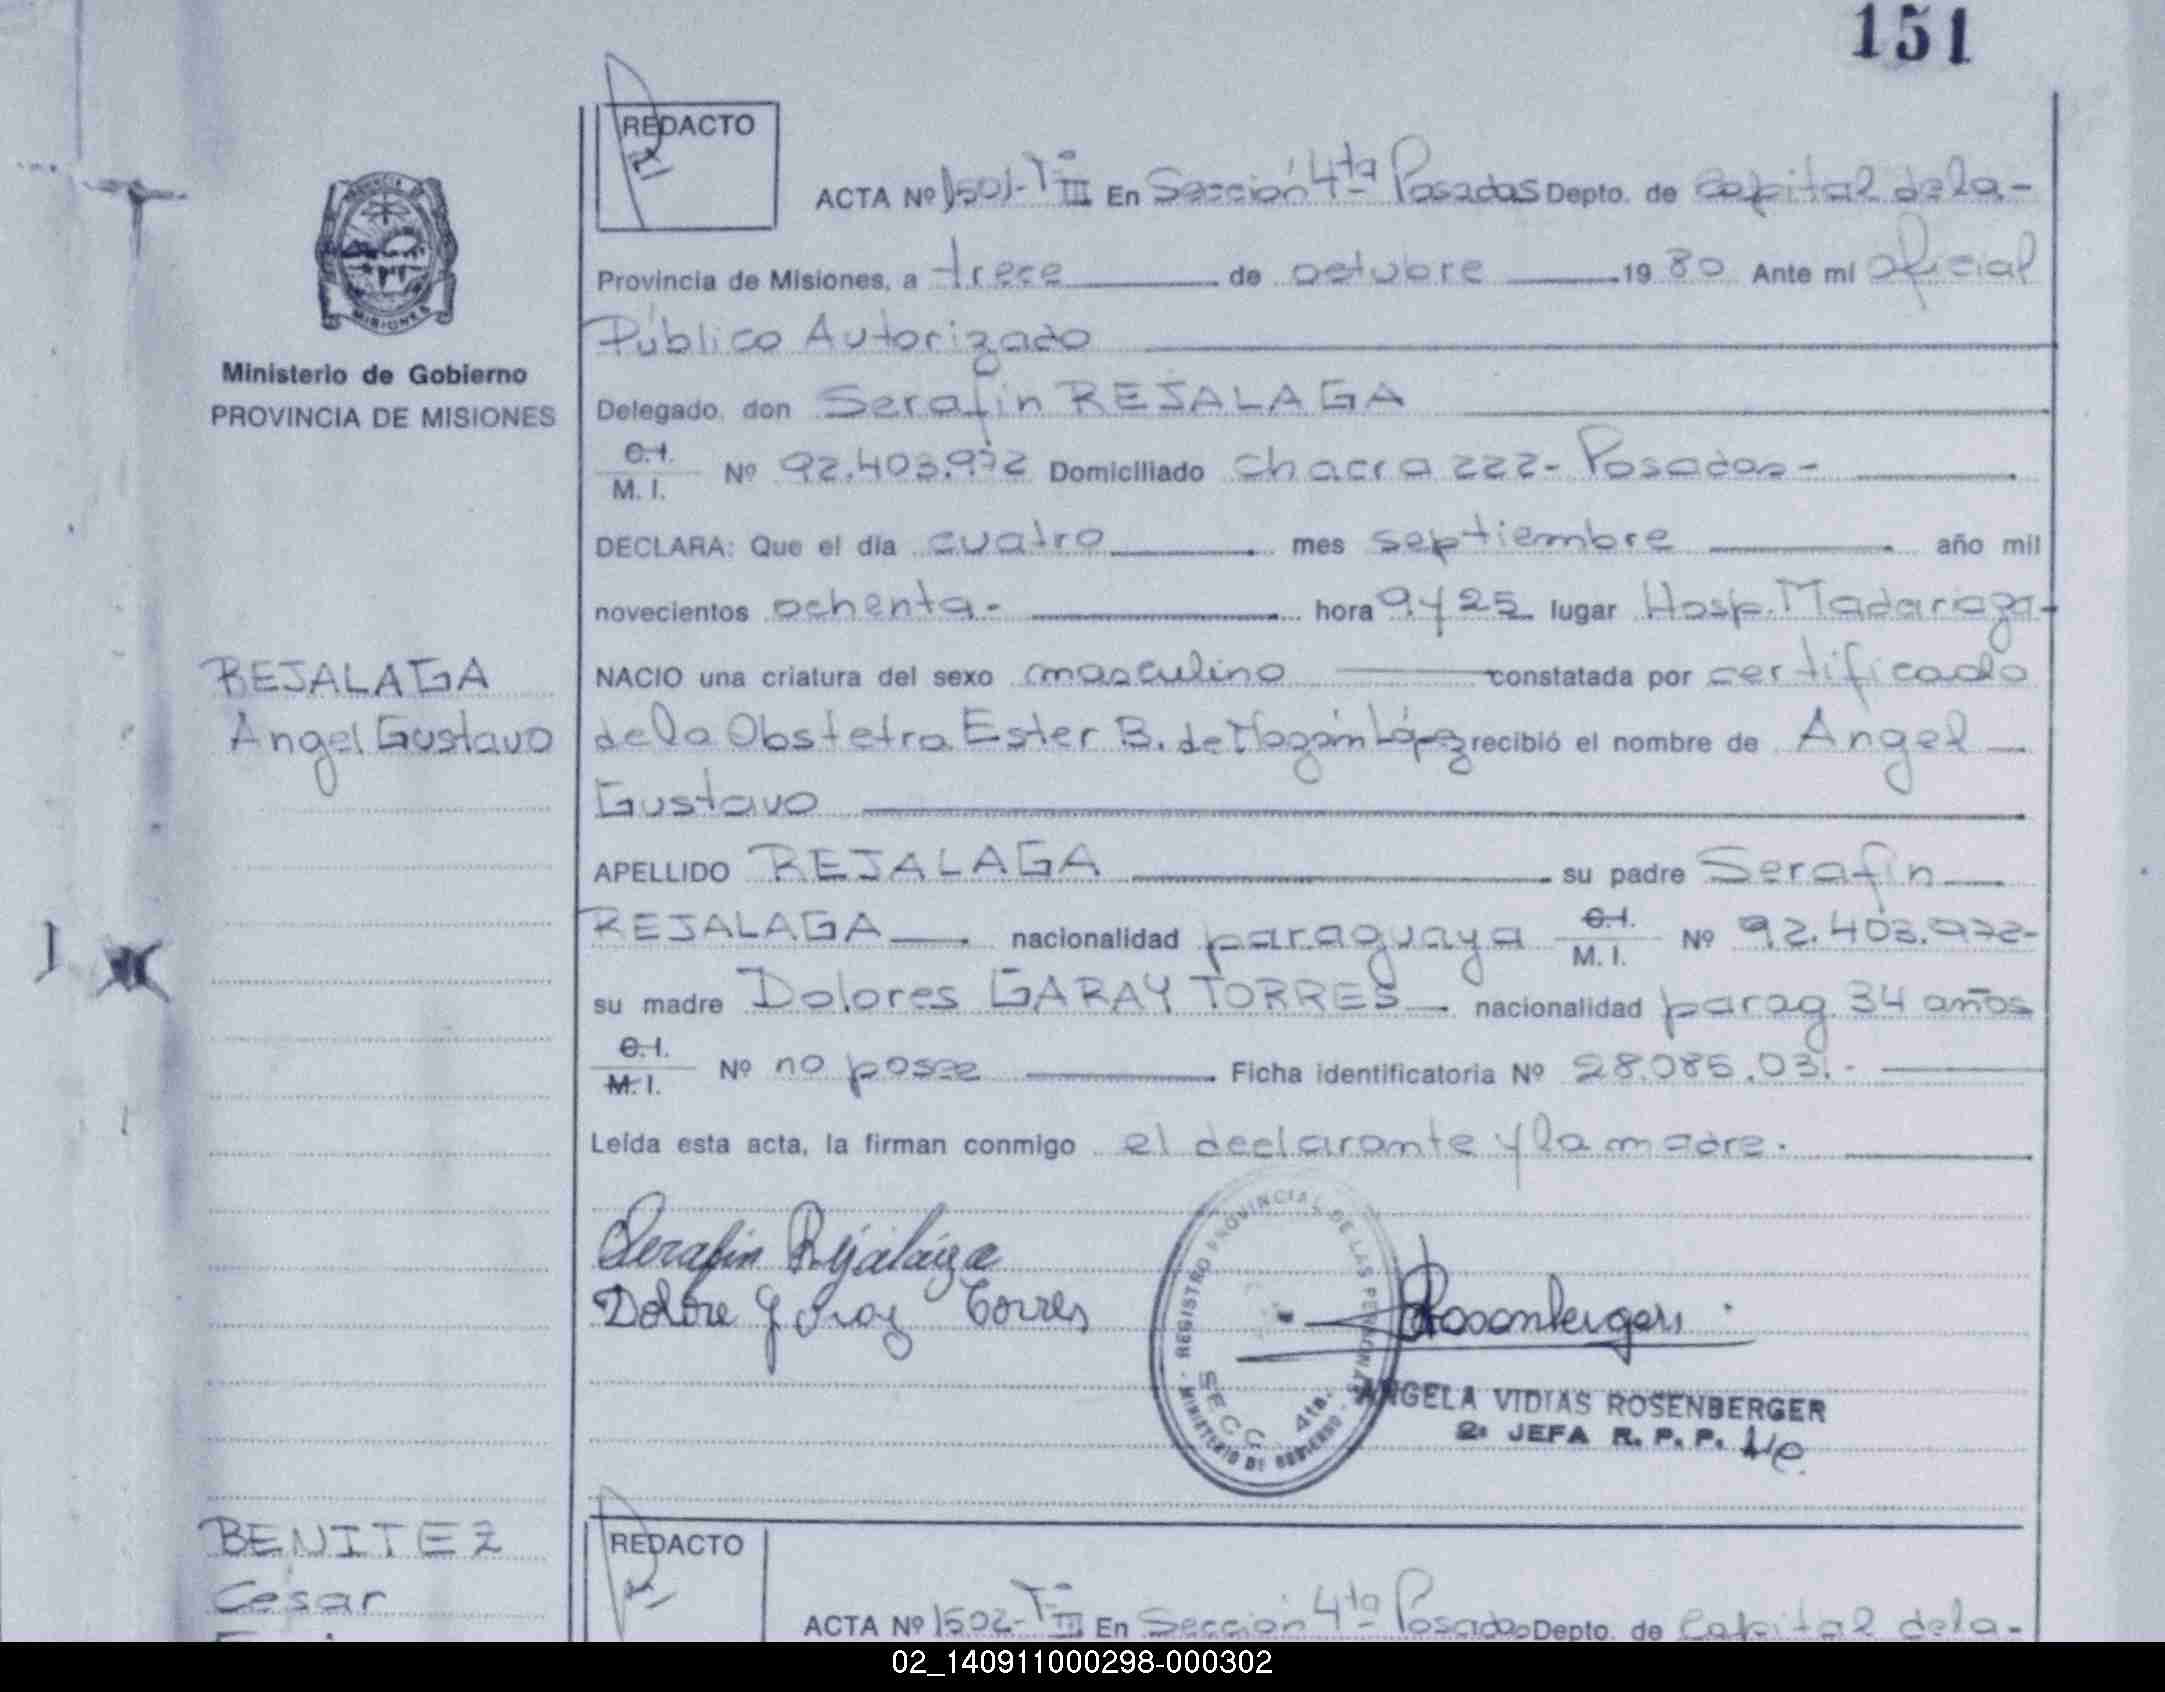 151
REDACTO
ACTA Nº 1501-Tº III En Sección 4ta Posadas Depto. de Capital de la-
Provincia de Misiones, a trece de octubre 1980 Ante mí oficial
Público Autorizado
Ministerio de Gobierno
PROVINCIA DE MISIONES
Delegado, don Serafin REJALAGA
C.I.
M. I. Nº 92.403.972 Domiciliado chacra 222- Posadas-
DECLARA: Que el día cuatro mes septiembre año mil
novecientos ochenta.- hora 9 y 25 lugar Hosp. Madariaga-
REJALAGA
Angel Gustavo
NACIO una criatura del sexo masculino constatada por certificado
de la Obstetra Ester B. de López recibió el nombre de Angel
Gustavo
APELLIDO REJALAGA su padre Serafín
REJALAGA nacionalidad paraguaya C.I. M. I. Nº 92.403.972-
su madre Dolores GARAY TORRES nacionalidad parag. 34 años
C.I.
M. I. Nº no posee Ficha identificatoria Nº 28.085.03.-
Leída esta acta, la firman conmigo el declarante y la madre.
Serafin Rejalaga
Dolore Garay Torres
REGISTRO PROVINCIAL DE LAS PERSONAS
SECC. 4ta.
MINISTERIO DE GOBIERNO
Rosenberger
ANGELA VIDIAS ROSENBERGER
2ª JEFA R. P. P.
BENITEZ
Cesar
REDACTO
ACTA Nº 1502-Tº III En Sección 4ta Posadas Depto. de Capital de la-
PROVINCIA DE
MISIONES
02_140911000298-000302